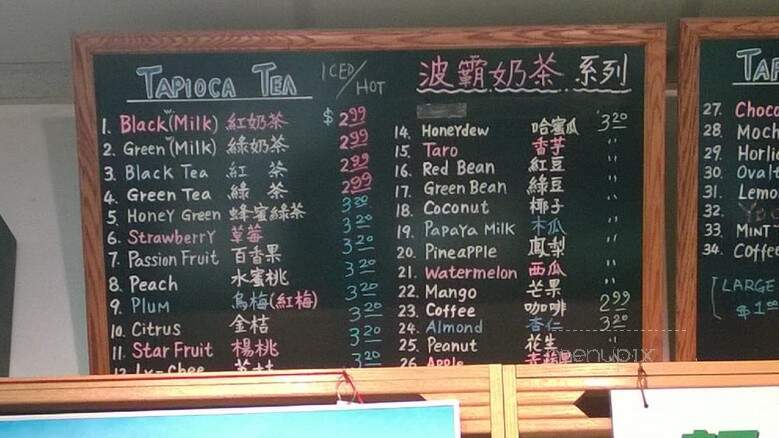 TAPIOCA TEA ICED/HOT 波霸奶茶 系列
1. Black (Milk) 紅奶茶 $2.99
2. Green (Milk) 綠奶茶 2.99
3. Black Tea 紅 茶 2.99
4. Green Tea 綠 茶 2.99
5 Honey Green 蜂蜜綠茶 3.20
6. Strawberry 草莓 3.20
7. Passion Fruit 百香果 3.20
8. Peach 水蜜桃 3.20
9. Plum 烏梅(紅梅) 3.20
10. Citrus 金桔 3.20
11. Star Fruit 楊桃 3.20
12. Ly-Chee
14. Honeydew 哈蜜瓜 3.20
15. Taro 香芋 "
16. Red Bean 紅豆 "
17. Green Bean 綠豆 "
18. Coconut 椰子 "
19. Papaya Milk 木瓜 "
20. Pineapple 鳳梨 "
21. Watermelon 西瓜 "
22. Mango 芒果 "
23. Coffee 咖啡 2.99
24. Almond 杏仁 3.20
25. Peanut 花生 "
26. Apple "
menupix
TAP
27. Choco
28. Moch
29. Horli
30. Ovalt
31. Lemo
32.
33. Mint
34. Coffee
[LARGE
$1.0